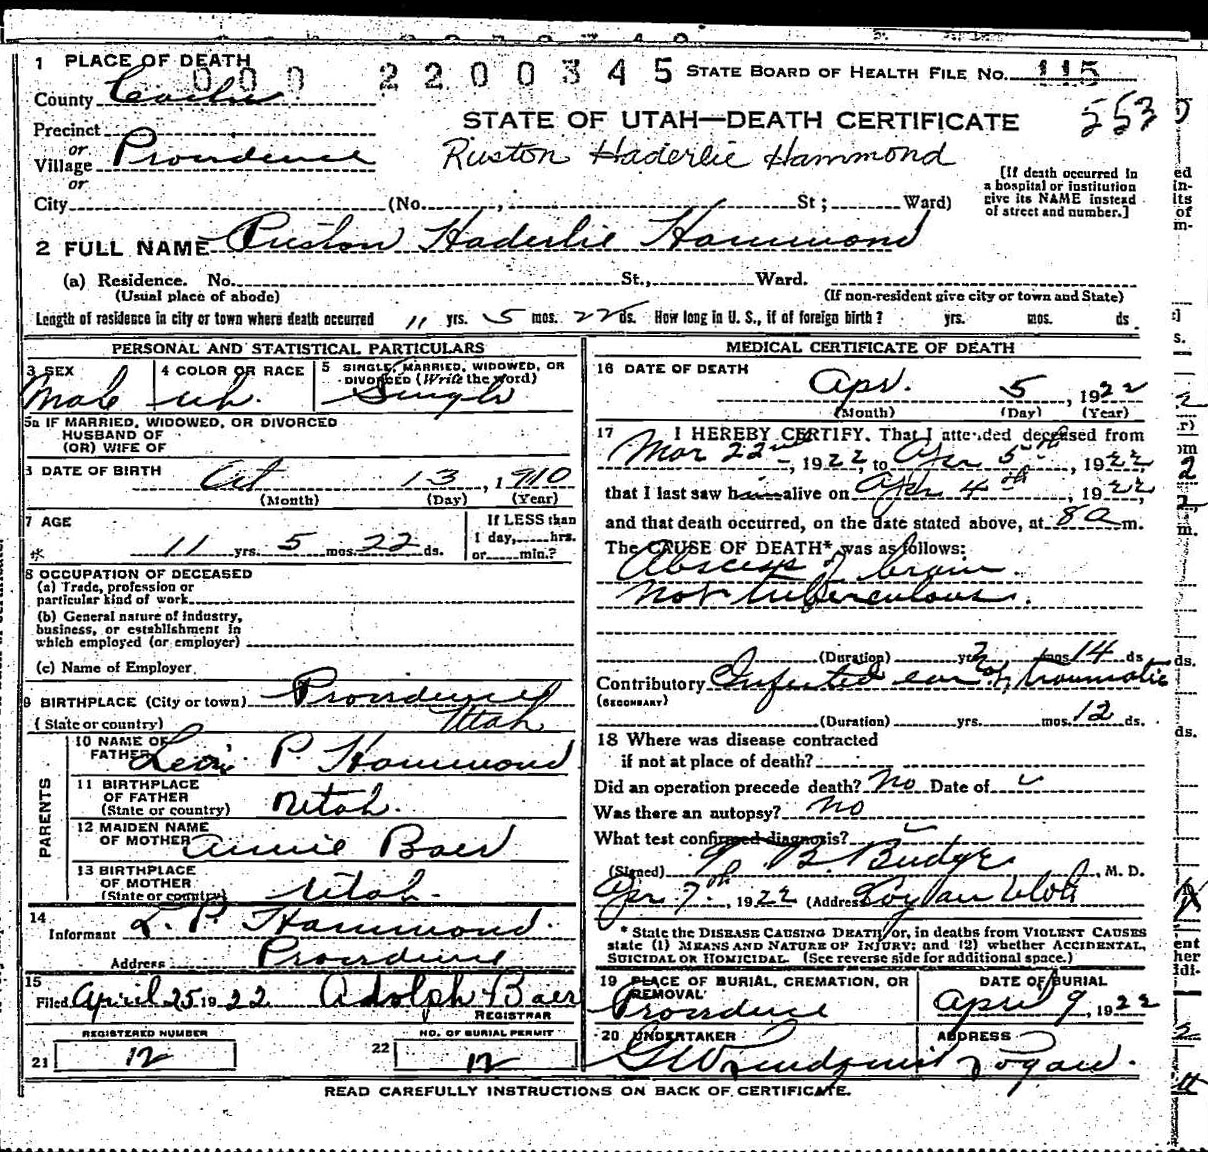 1 PLACE OF DEATH
000 2200345
STATE BOARD OF HEALTH FILE No. 115
County Cache
553
STATE OF UTAH—DEATH CERTIFICATE
Precinct
or
Village Providence
Ruston Haderlie Hammond
or
City (No. , St ; Ward)
[If death occurred in
a hospital or institution
give its NAME instead
of street and number.]
2 FULL NAME Ruston Haderlie Hammond
(a) Residence. No. St., Ward.
(Usual place of abode) (If non-resident give city or town and State)
Length of residence in city or town where death occurred 11 yrs. 5 mos. 22 ds. How long in U. S., if of foreign birth? yrs. mos. ds
PERSONAL AND STATISTICAL PARTICULARS
3 SEX
Male
4 COLOR OR RACE
wh.
5 SINGLE, MARRIED, WIDOWED, OR
DIVORCED (Write the word)
Single
5a IF MARRIED, WIDOWED, OR DIVORCED
HUSBAND OF
(OR) WIFE OF
DATE OF BIRTH
Oct 13, 1910
(Month) (Day) (Year)
7 AGE
11 yrs. 5 mos. 22 ds.
If LESS than
1 day, hrs.
or min.?
8 OCCUPATION OF DECEASED
(a) Trade, profession or
particular kind of work
(b) General nature of industry,
business, or establishment in
which employed (or employer)
(c) Name of Employer
9 BIRTHPLACE (City or town) Providence
(State or country) Utah
PARENTS
10 NAME OF
FATHER Levi P Hammond
11 BIRTHPLACE
OF FATHER
(State or country) Utah.
12 MAIDEN NAME
OF MOTHER Annie Baer
13 BIRTHPLACE
OF MOTHER
(State or country) Utah.
14
Informant L. P. Hammond.
Address Providence
15
Filed April 25 1922 Adolph Baer
REGISTRAR
REGISTERED NUMBER
21 12
NO. OF BURIAL PERMIT
22 12
MEDICAL CERTIFICATE OF DEATH
16 DATE OF DEATH
Apr. 5, 1922
(Month) (Day) (Year)
17 I HEREBY CERTIFY, That I attended deceased from
Mar 22nd, 1922, to Apr 5th, 1922,
that I last saw him alive on Apr 4th, 1922,
and that death occurred, on the date stated above, at 8 a m.
The CAUSE OF DEATH* was as follows:
Abscess of brain.
not tuberculous.
(Duration) yrs. mos. 14 ds
Contributory Infected ear traumatic
(SECONDARY)
(Duration) yrs. mos. 12 ds.
18 Where was disease contracted
if not at place of death?
Did an operation precede death? No Date of
Was there an autopsy? No
What test confirmed diagnosis?
(Signed) B. Budge, M. D.
Apr 7th, 1922 (Address Logan Utah
* State the DISEASE CAUSING DEATH, or, in deaths from VIOLENT CAUSES
state (1) MEANS AND NATURE OF INJURY; and (2) whether ACCIDENTAL,
SUICIDAL OR HOMICIDAL. (See reverse side for additional space.)
19 PLACE OF BURIAL, CREMATION, OR
REMOVAL
Providence
DATE OF BURIAL
April 9, 1922
20 UNDERTAKER
ADDRESS
Logan.
READ CAREFULLY INSTRUCTIONS ON BACK OF CERTIFICATE.